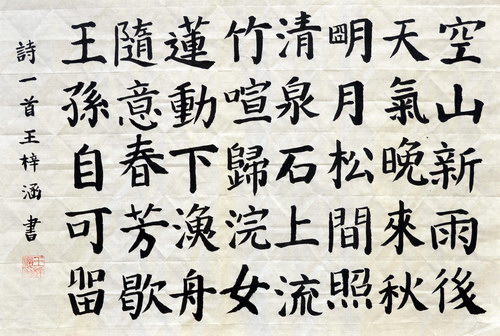 空山新雨後
天氣晚來秋
明月松間照
清泉石上流
竹喧歸浣女
蓮動下漁舟
隨意春芳歇
王孫自可留
詩一首王梓涵書